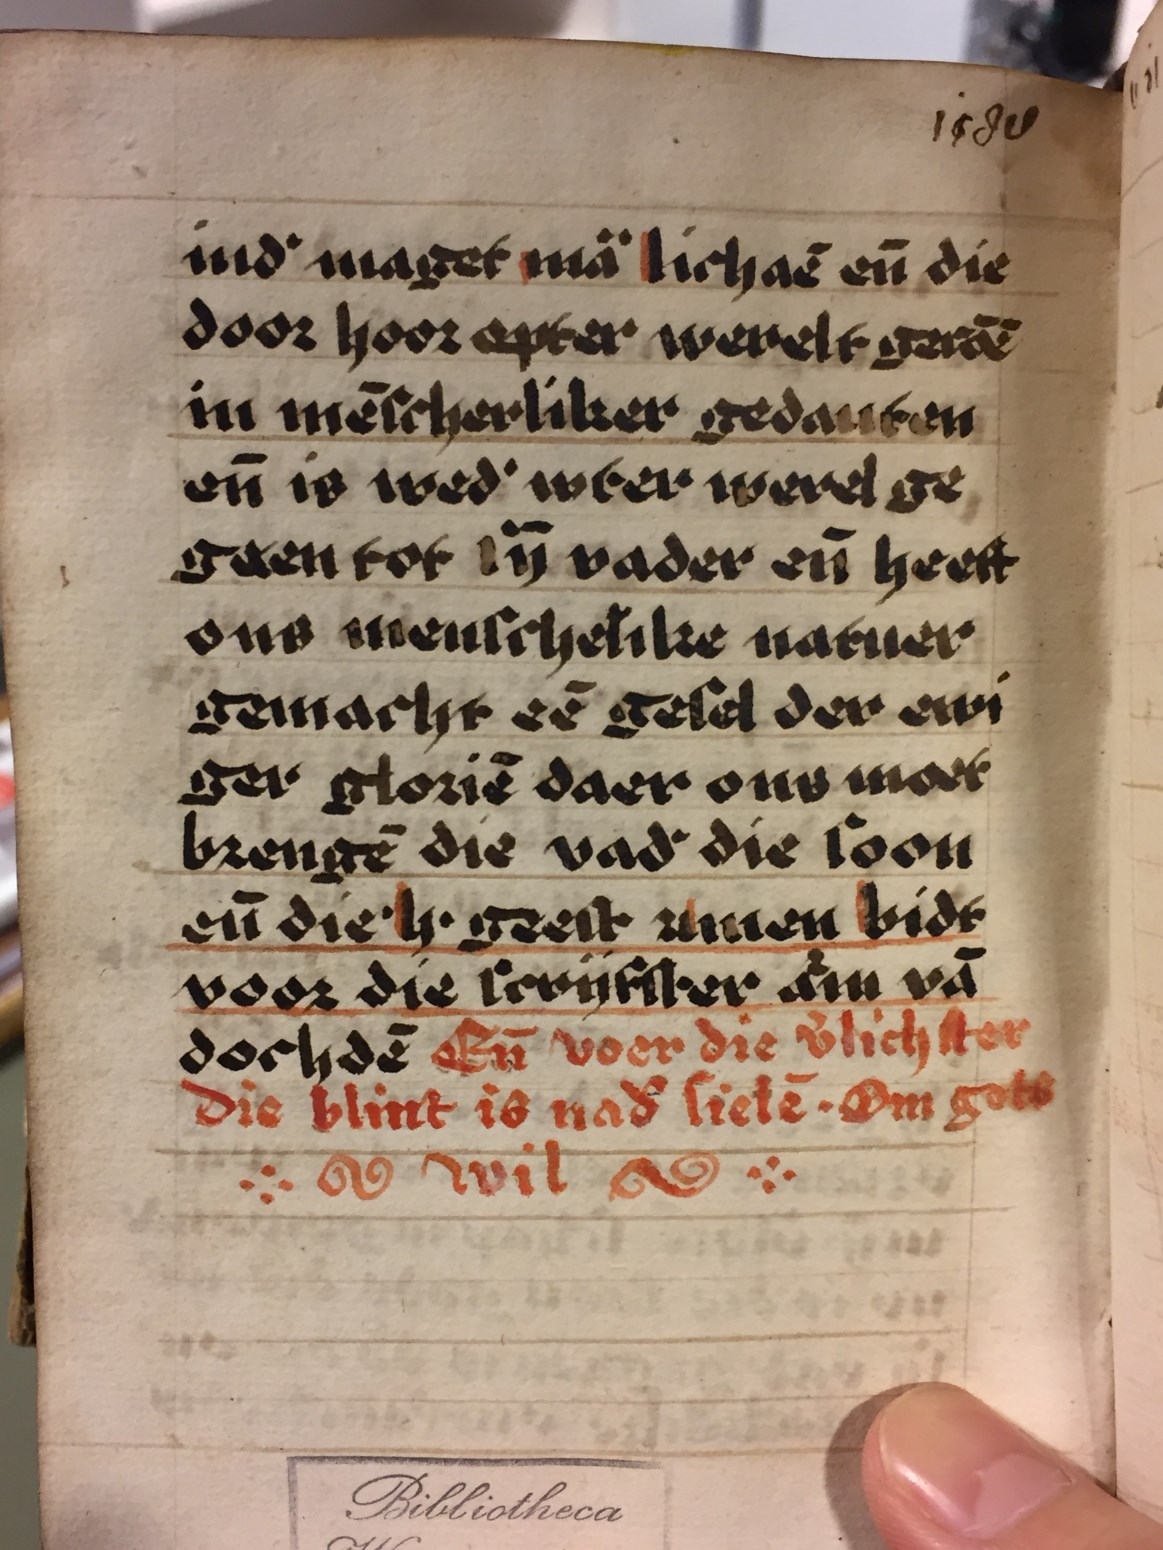 ind' maget mā lichaē eñ die
door hoor opter werelt
in mēscherliker gedanten
eñ is wed' wter werel ge
gaen tot sijn vader eñ heeft
ons menschelike natuer
gemacht eē gesel der ewi
ger gloriē daer ons moet
brengē die vad' die soon
eñ die h. geest amen bidt
voor die scrijfster vā
dochdē Eñ voer die v̄lichster
Die blint is nad' sielē. Om gods
wil
Bibliotheca